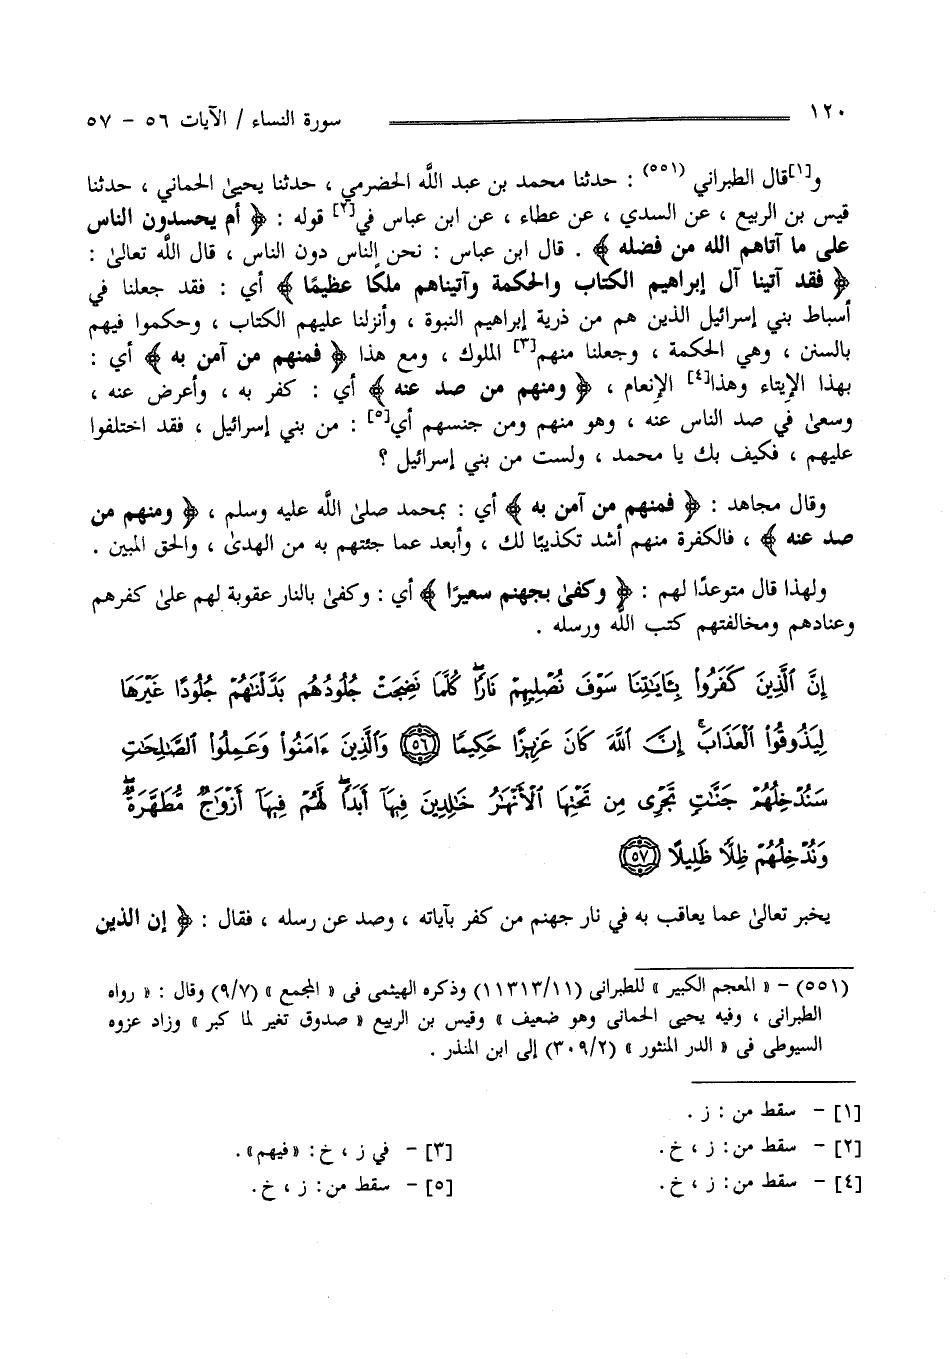 ١٢٠ سورة النساء / الآيات ٥٦ - ٥٧
و[١]قال الطبراني (٥٥١) : حدثنا محمد بن عبد اللَّه الحضرمي ، حدثنا يحيىٰ الحماني ، حدثنا
قيس بن الربيع ، عن السدي ، عن عطاء ، عن ابن عباس في[٢] قوله : ﴿ أم يحسدون الناس
على ما آتاهم الله من فضله ﴾ . قال ابن عباس : نحن الناس دون الناس ، قال اللَّه تعالىٰ :
﴿ فقد آتينا آل إبراهيم الكتاب والحكمة وآتيناهم ملكًا عظيمًا ﴾ أي : فقد جعلنا في
أسباط بني إسرائيل الذين هم من ذرية إبراهيم النبوة ، وأنزلنا عليهم الكتاب ، وحكموا فيهم
بالسنن ، وهي الحكمة ، وجعلنا منهم[٣] الملوك ، ومع هذا ﴿ فمنهم من آمن به ﴾ أي :
بهذا الإيتاء وهذا[٤] الإنعام ، ﴿ ومنهم من صد عنه ﴾ أي : كفر به ، وأعرض عنه ،
وسعىٰ في صد الناس عنه ، وهو منهم ومن جنسهم أي[٥] : من بني إسرائيل ، فقد اختلفوا
عليهم ، فكيف بك يا محمد ، ولست من بني إسرائيل ؟
وقال مجاهد : ﴿ فمنهم من آمن به ﴾ أي : بمحمد صلىٰ اللَّه عليه وسلم ، ﴿ ومنهم من
صد عنه ﴾ ، فالكفرة منهم أشد تكذيبًا لك ، وأبعد عما جئتهم به من الهدىٰ ، والحق المبين .
ولهذا قال متوعدًا لهم : ﴿ وكفىٰ بجهنم سعيرًا ﴾ أي : وكفىٰ بالنار عقوبة لهم علىٰ كفرهم
وعنادهم ومخالفتهم كتب اللَّه ورسله .
إِنَّ ٱلَّذِينَ كَفَرُواْ بِـَٔايَٰتِنَا سَوْفَ نُصْلِيهِمْ نَارًا ۖ كُلَّمَا نَضِجَتْ جُلُودُهُم بَدَّلْنَٰهُمْ جُلُودًا غَيْرَهَا
لِيَذُوقُواْ ٱلْعَذَابَ ۚ إِنَّ ٱللَّهَ كَانَ عَزِيزًا حَكِيمًا ٥٦ وَٱلَّذِينَ ءَامَنُواْ وَعَمِلُواْ ٱلصَّٰلِحَٰتِ
سَنُدْخِلُهُمْ جَنَّٰتٍ تَجْرِى مِن تَحْتِهَا ٱلْأَنْهَٰرُ خَٰلِدِينَ فِيهَآ أَبَدًا ۖ لَّهُمْ فِيهَآ أَزْوَٰجٌ مُّطَهَّرَةٌ ۖ
وَنُدْخِلُهُمْ ظِلًّا ظَلِيلًا ٥٧
يخبر تعالىٰ عما يعاقب به في نار جهنم من كفر بآياته ، وصد عن رسله ، فقال : ﴿ إن الذين
(٥٥١) - « المعجم الكبير » للطبرانى (١١٣١٣/١١) وذكره الهيثمى فى « المجمع » (٩/٧) وقال : « رواه
الطبرانى ، وفيه يحيى الحمانى وهو ضعيف » وقيس بن الربيع « صدوق تغير لما كبر » وزاد عزوه
السيوطى فى « الدر المنثور » (٣٠٩/٢) إلى ابن المنذر .
[١] - سقط من : ز .
[٢] - سقط من : ز ، خ. [٣] - في ز ، خ : «فيهم» .
[٤] - سقط من : ز ، خ. [٥] - سقط من : ز ، خ.